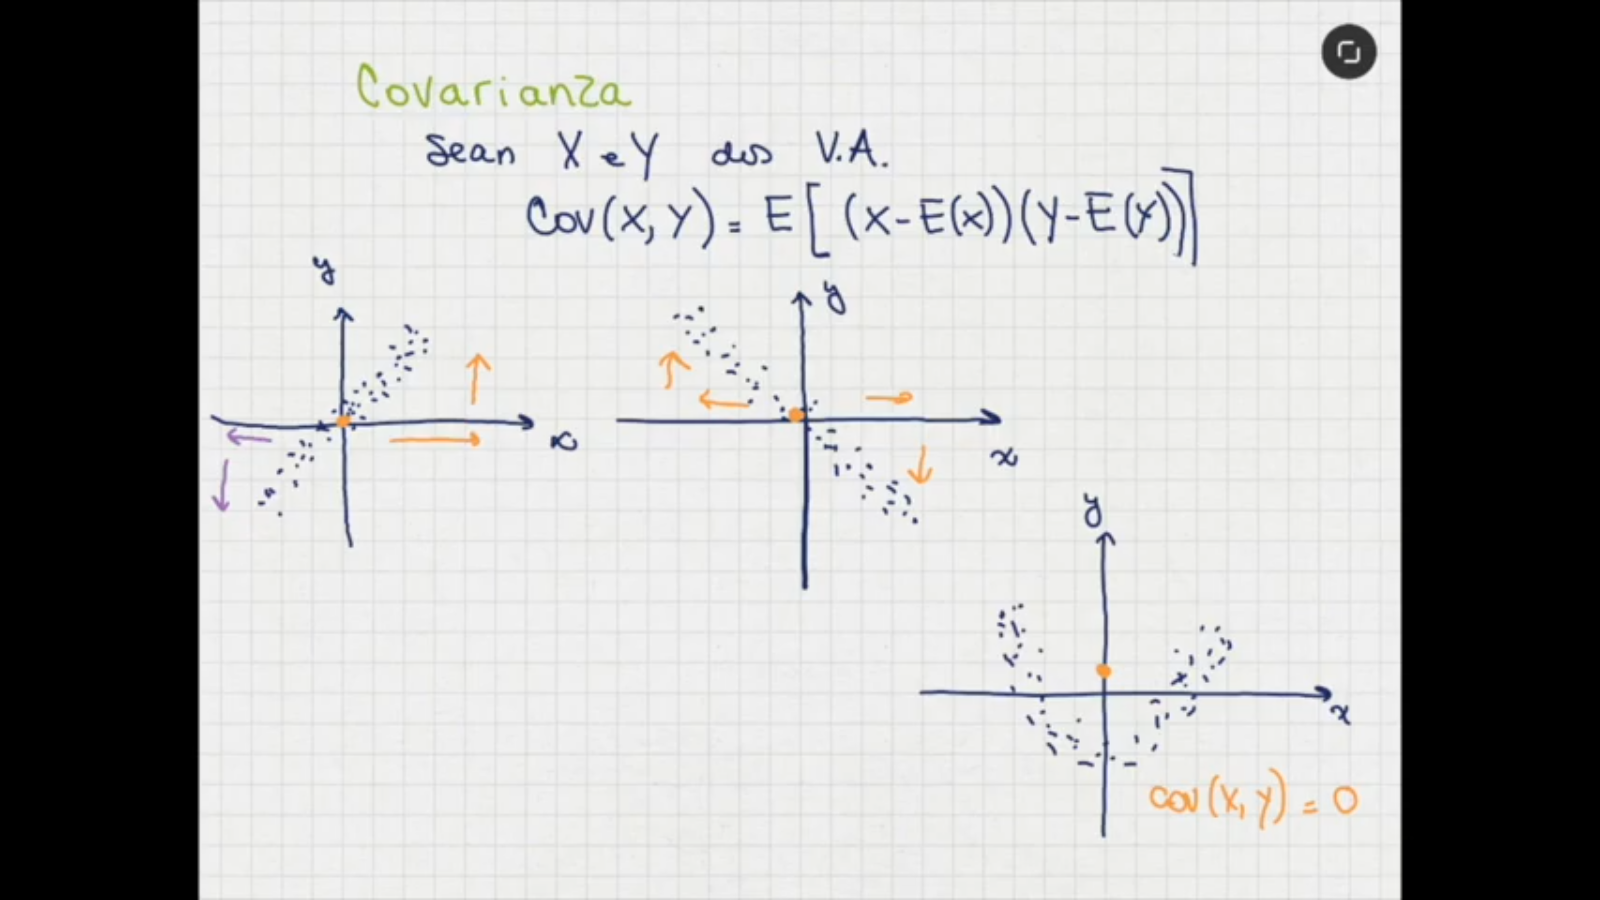 Covarianza
Sean X e Y dos V.A.
Cov(X, Y) = E[(X-E(x))(Y-E(Y))]
y
x
y
x
y
x
cov(X, Y) = 0